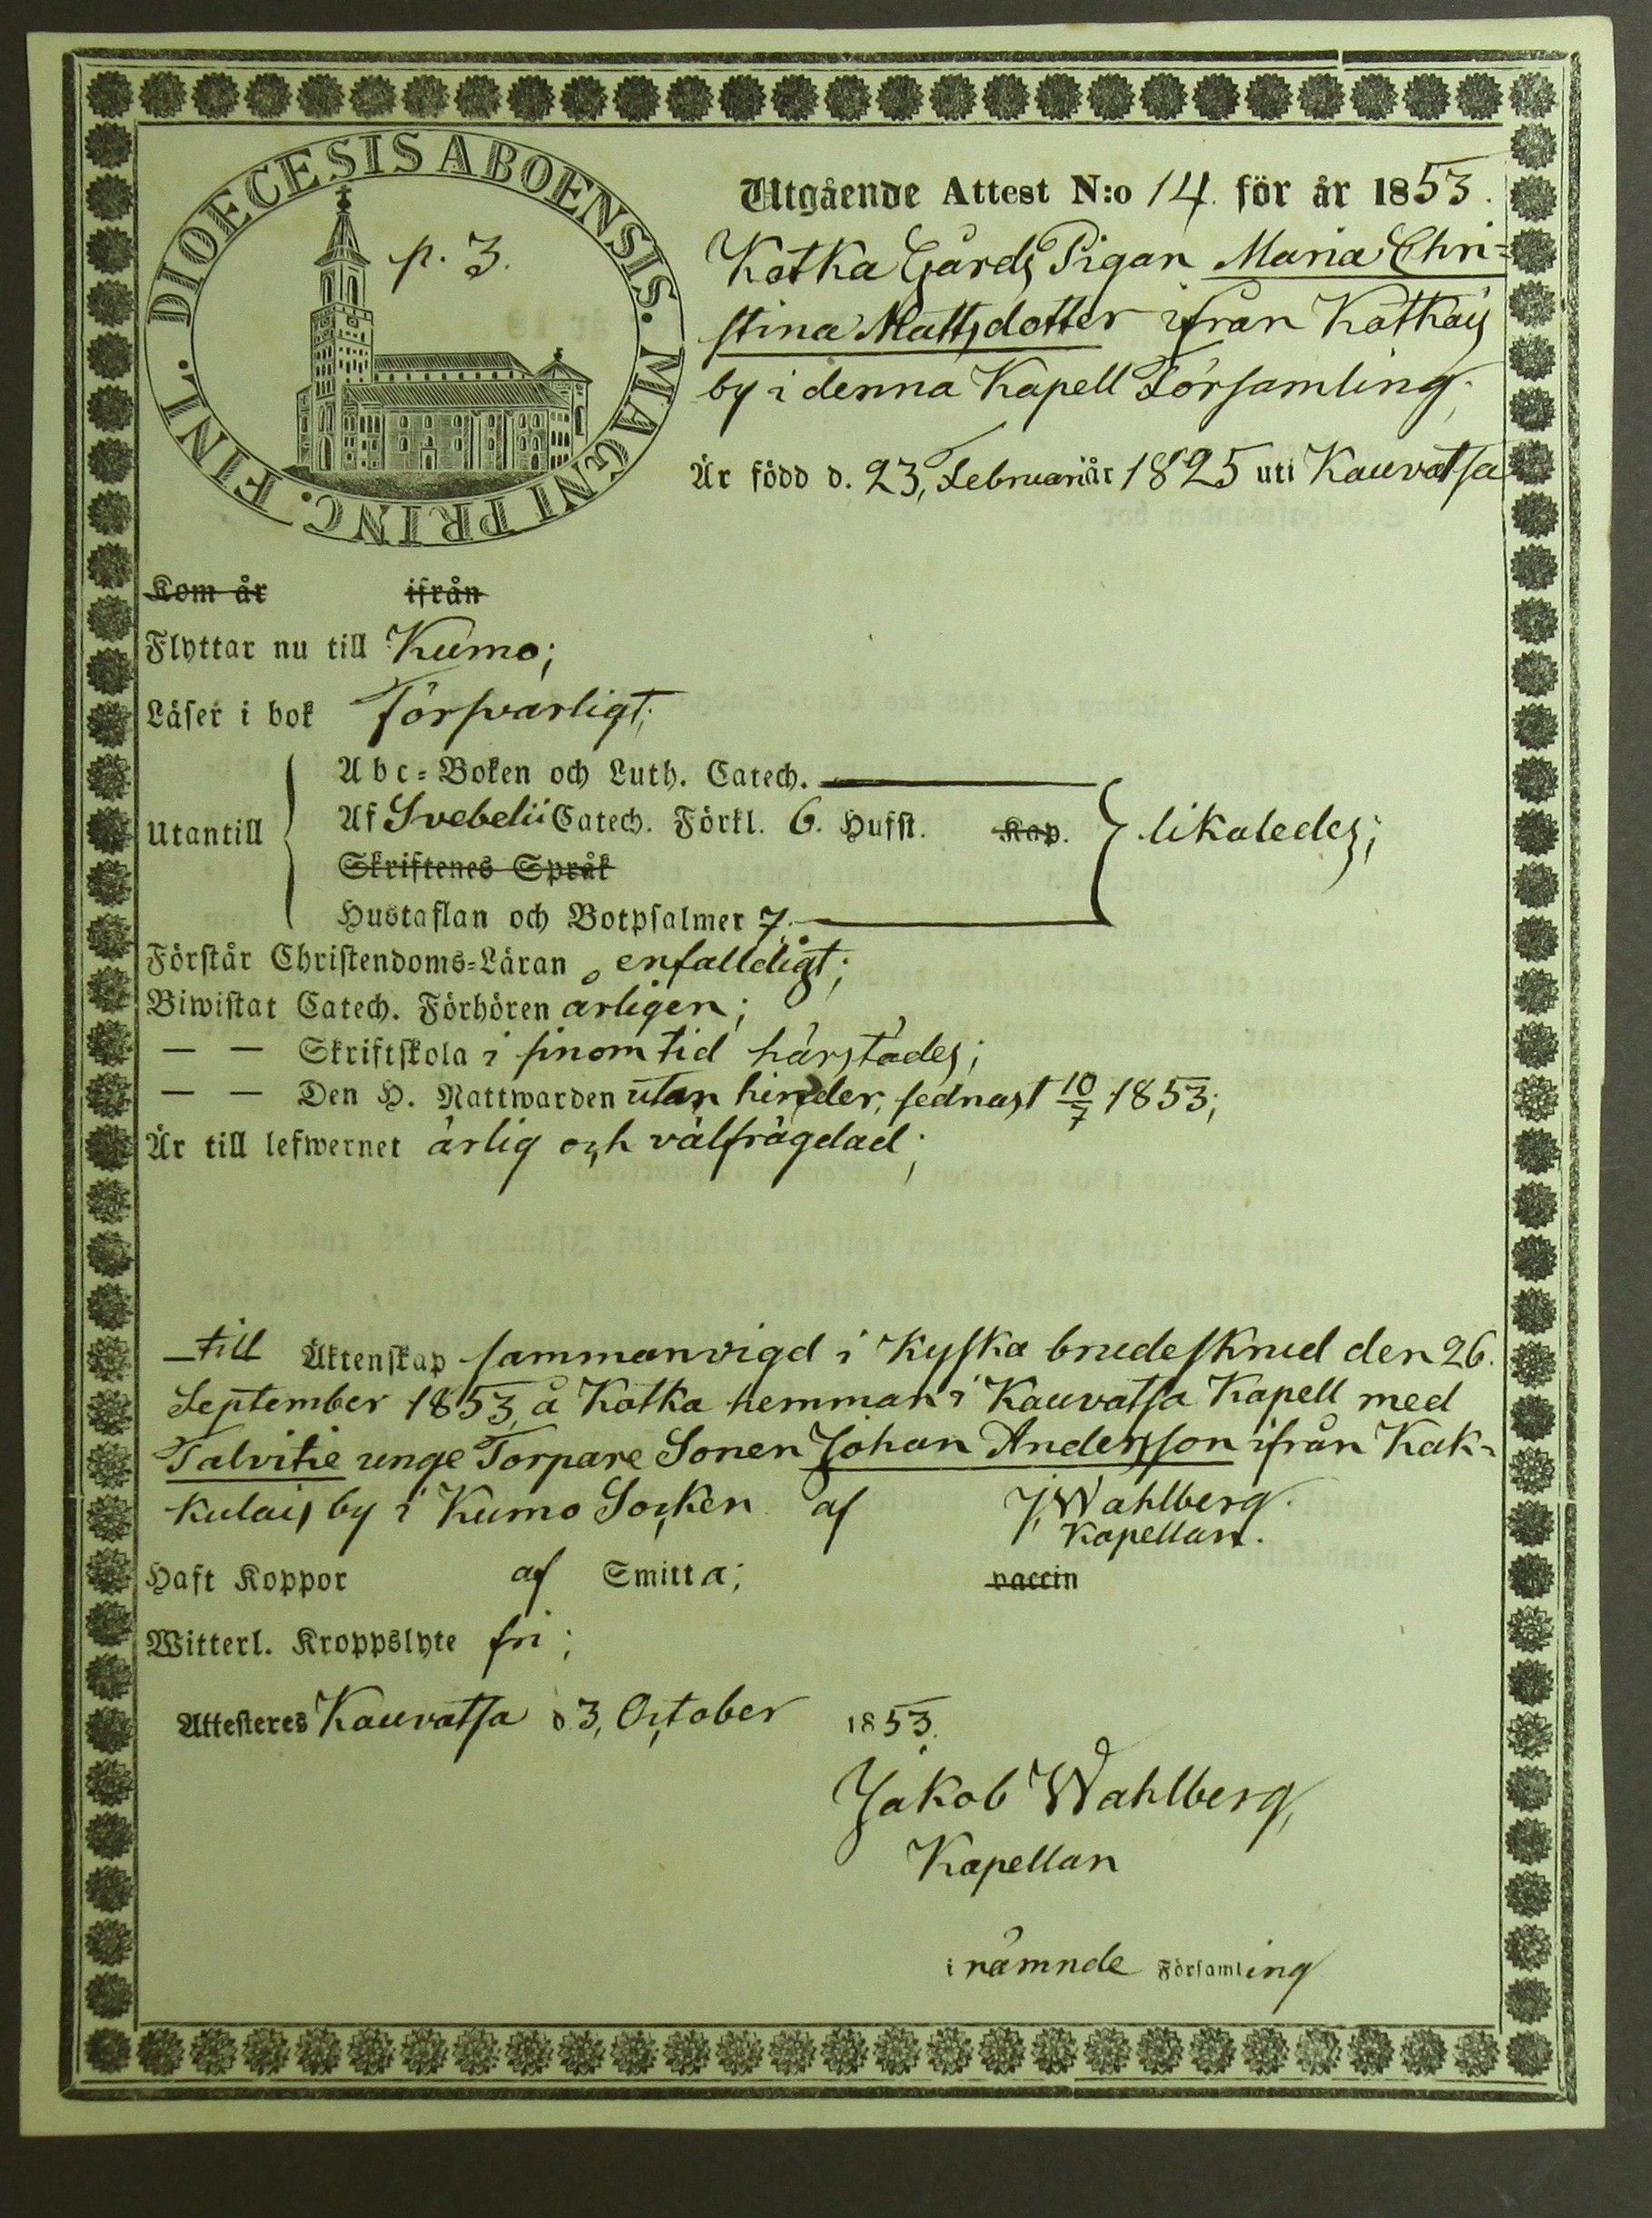 DIOECESIS ABOENSIS. MAGNI PRINC. FINL.
p. 3.
Utgående Attest N:o 14. för år 1853.
Kotka Gårds Pigan Maria Chri=
stina Mattsdotter ifrån Kotkais
by i denna Kapell Församling;
Är född d. 23, Februari år 1825 uti Kauvatsa
Kom år ifrån
Flyttar nu till Kumo;
Läser i bok Försvarligt;
Abc=Boken och Luth. Catech.
Utantill Af Svebelii Catech. Förkl. 6. Hufst. Kap. likaledes;
Skriftenes Språk
Hustaflan och Botpsalmer 7.
Förstår Christendoms=Läran enfalldigt;
Biwistat Catech. Förhören årligen;
— — Skriftskola i sinom tid härstädes;
— — Den H. Nattwarden utan hinder, sednast 10/7 1853;
Är till lefwernet ärlig och välfrägdad;
till Äktenskap sammanvigd i Kyska brudeskrud den 26.
September 1853, å Kotka hemman i Kauvatsa Kapell med
Talvitie unge Torpare Sonen Johan Andersson ifrån Kak=
kulais by i Kumo Socken af J. Wahlberg.
Kapellan.
Haft Koppor af Smitta; vaccin
Witterl. Kroppslyte fri;
Attesteres Kauvatsa d. 3, October 1853.
Jakob Wahlberg,
Kapellan
i nämnde Församling